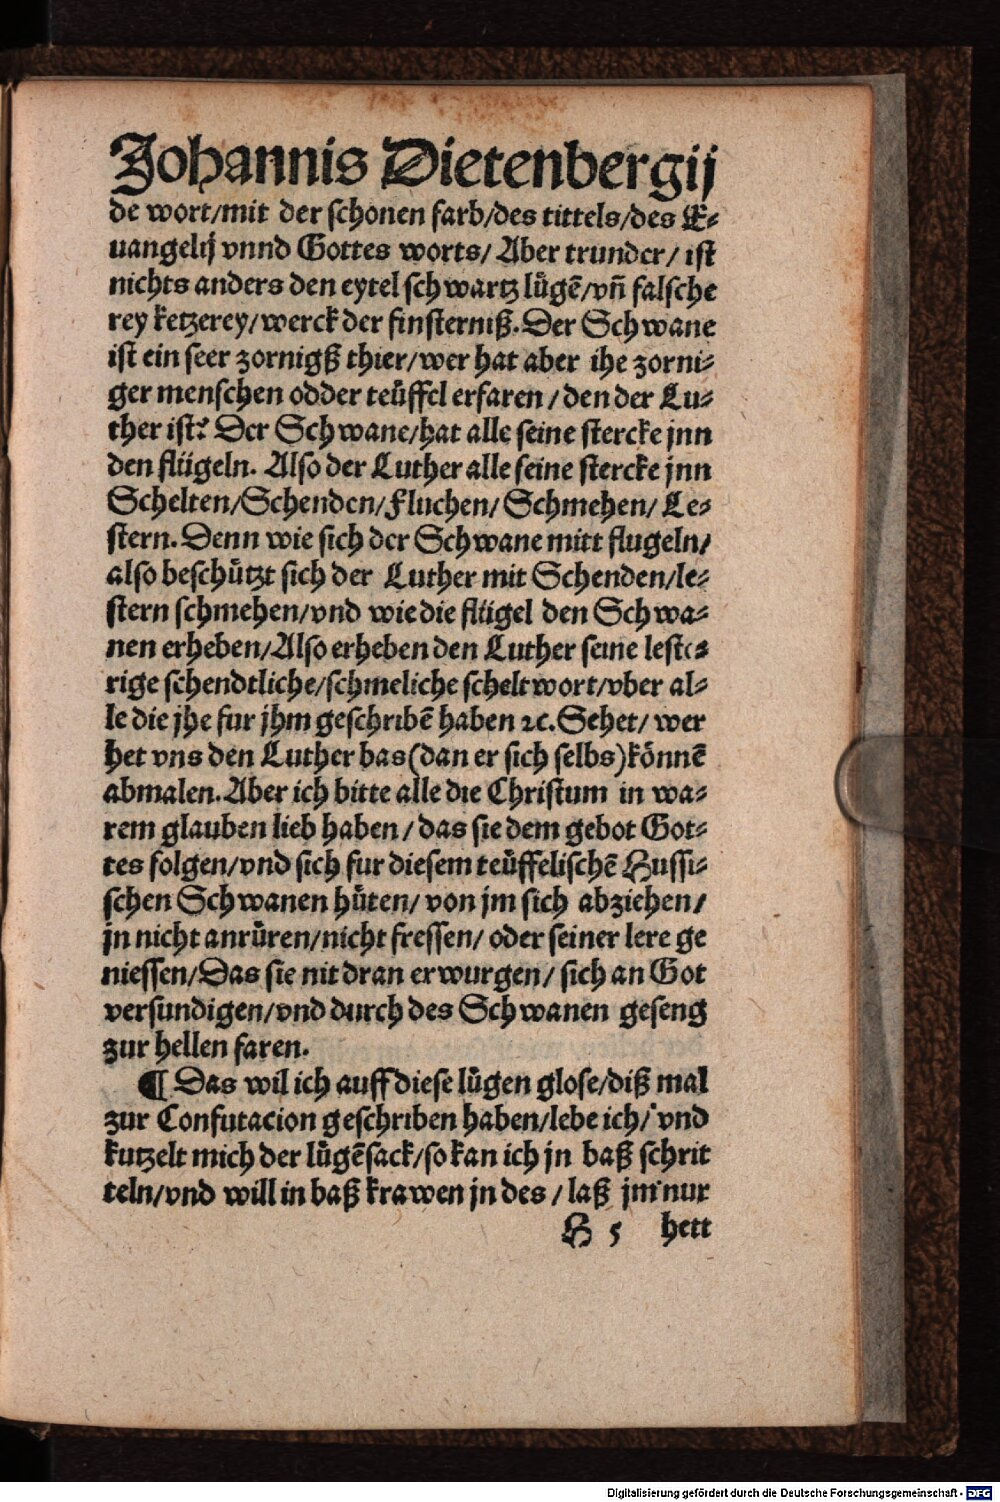 Johannis Dietenbergij
de wort/mit der schonen farb/des tittels/des E⸗
uangelij vnnd Gottes worts/ Aber trunder/ ist
nichts anders den eytel schwartz lügē/vñ falsche
rey ketzerey/werck der finsterniß. Der Schwane
ist ein seer zornigß thier/wer hat aber ihe zorni⸗
ger menschen odder teüffel erfaren/den der Lu⸗
ther ist? Der Schwane/hat alle seine stercke jnn
den flügeln. Also der Luther alle seine stercke jnn
Schelten/Schenden/Fluchen/ Schmehen/ Le⸗
stern. Denn wie sich der Schwane mitt flugeln/
also beschützt sich der Luther mit Schenden/le⸗
stern schmehen/vnd wie die flügel den Schwa⸗
nen erheben/Also erheben den Luther seine leste⸗
rige schendtliche/schmeliche scheltwort/vber al⸗
le die jhe fur jhm geschribē haben ꝛc. Sehet/ wer
het vns den Luther bas(dan er sich selbs)könnē
abmalen. Aber ich bitte alle die Christum in wa⸗
rem glauben lieb haben/ das sie dem gebot Got⸗
tes folgen/vnd sich fur diesem teüffelischē Hussi⸗
schen Schwanen hüten/ von jm sich abziehen/
jn nicht anrüren/nicht fressen/ oder seiner lere ge
niessen/Das sie nit dran erwurgen/ sich an Got
versundigen/vnd durch des Schwanen geseng
zur hellen faren.
¶ Das wil ich auff diese lügen glose/diß mal
zur Confutacion geschriben haben/lebe ich/ vnd
kutzelt mich der lügēsack/so kan ich jn baß schrit
teln/vnd will in baß krawen jn des/ laß jm nur
H 5 hett
Digitalisierung gefördert durch die Deutsche Forschungsgemeinschaft - DFG